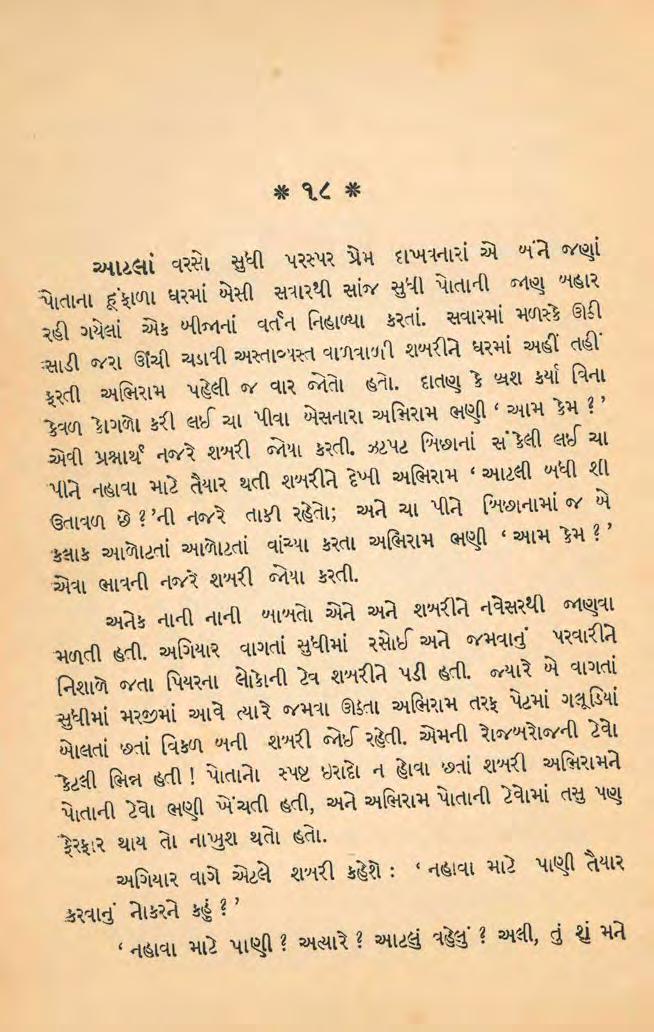 * ૧૮ *
આટલાં વરસો સુધી પરસ્પર પ્રેમ દાખવનારાં એ બંને જણાં
પોતાના હૂંફાળા ઘરમાં બેસી સવારથી સાંજ સુધી પોતાની જાણ બહાર
રહી ગયેલાં એક બીજાનાં વર્તન નિહાળ્યા કરતાં. સવારમાં મળસ્કે ઊઠી
સાડી જરા ઊંચી ચડાવી અસ્તાવ્યસ્ત વાળવાળી શબરીને ઘરમાં અહીં તહીં
ફરતી અભિરામ પહેલી જ વાર જોતો હતો. દાતણ કે બ્રશ કર્યા વિના
કેવળ કોગળો કરી લઈ ચા પીવા બેસનારા અભિરામ ભણી ‘ આમ કેમ ? ’
એવી પ્રશ્નાર્થ નજરે શબરી જોયા કરતી. ઝટપટ બિછાનાં સંકેલી લઈ ચા
પીને નહાવા માટે તૈયાર થતી શબરીને દેખી અભિરામ ‘ આટલી બધી શી
ઉતાવળ છે ? ’ની નજરે તાકી રહેતો; અને ચા પીને બિછાનામાં જ બે
કલાક આળોટતાં આળોટતાં વાંચ્યા કરતા અભિરામ ભણી ‘ આમ કેમ ? ’
એવા ભાવની નજરે શબરી જોયા કરતી.
અનેક નાની નાની બાબતો એને અને શબરીને નવેસરથી જાણવા
મળતી હતી. અગિયાર વાગતાં સુધીમાં રસોઈ અને જમવાનું પરવારીને
નિશાળે જતા પિયરના લોકોની ટેવ શબરીને પડી હતી. જ્યારે બે વાગતાં
સુધીમાં મરજીમાં આવે ત્યારે જમવા ઊઠતા અભિરામ તરફ પેટમાં ગલૂડિયાં
બોલતાં છતાં વિકળ બની શબરી જોઈ રહેતી. એમની રોજબરોજની ટેવો
કેટલી ભિન્ન હતી ! પોતાનો સ્પષ્ટ ઇરાદો ન હોવા છતાં શબરી અભિરામને
પોતાની ટેવો ભણી ખેંચતી હતી, અને અભિરામ પોતાની ટેવોમાં તસુ પણ
ફેરફાર થાય તો નાખુશ થતો હતો.
અગિયાર વાગે એટલે શબરી કહેશે : ‘ નહાવા માટે પાણી તૈયાર
કરવાનું નોકરને કહું ? ’
‘ નહાવા માટે પાણી ? અત્યારે ? આટલું વહેલું ? અલી, તું શું મને